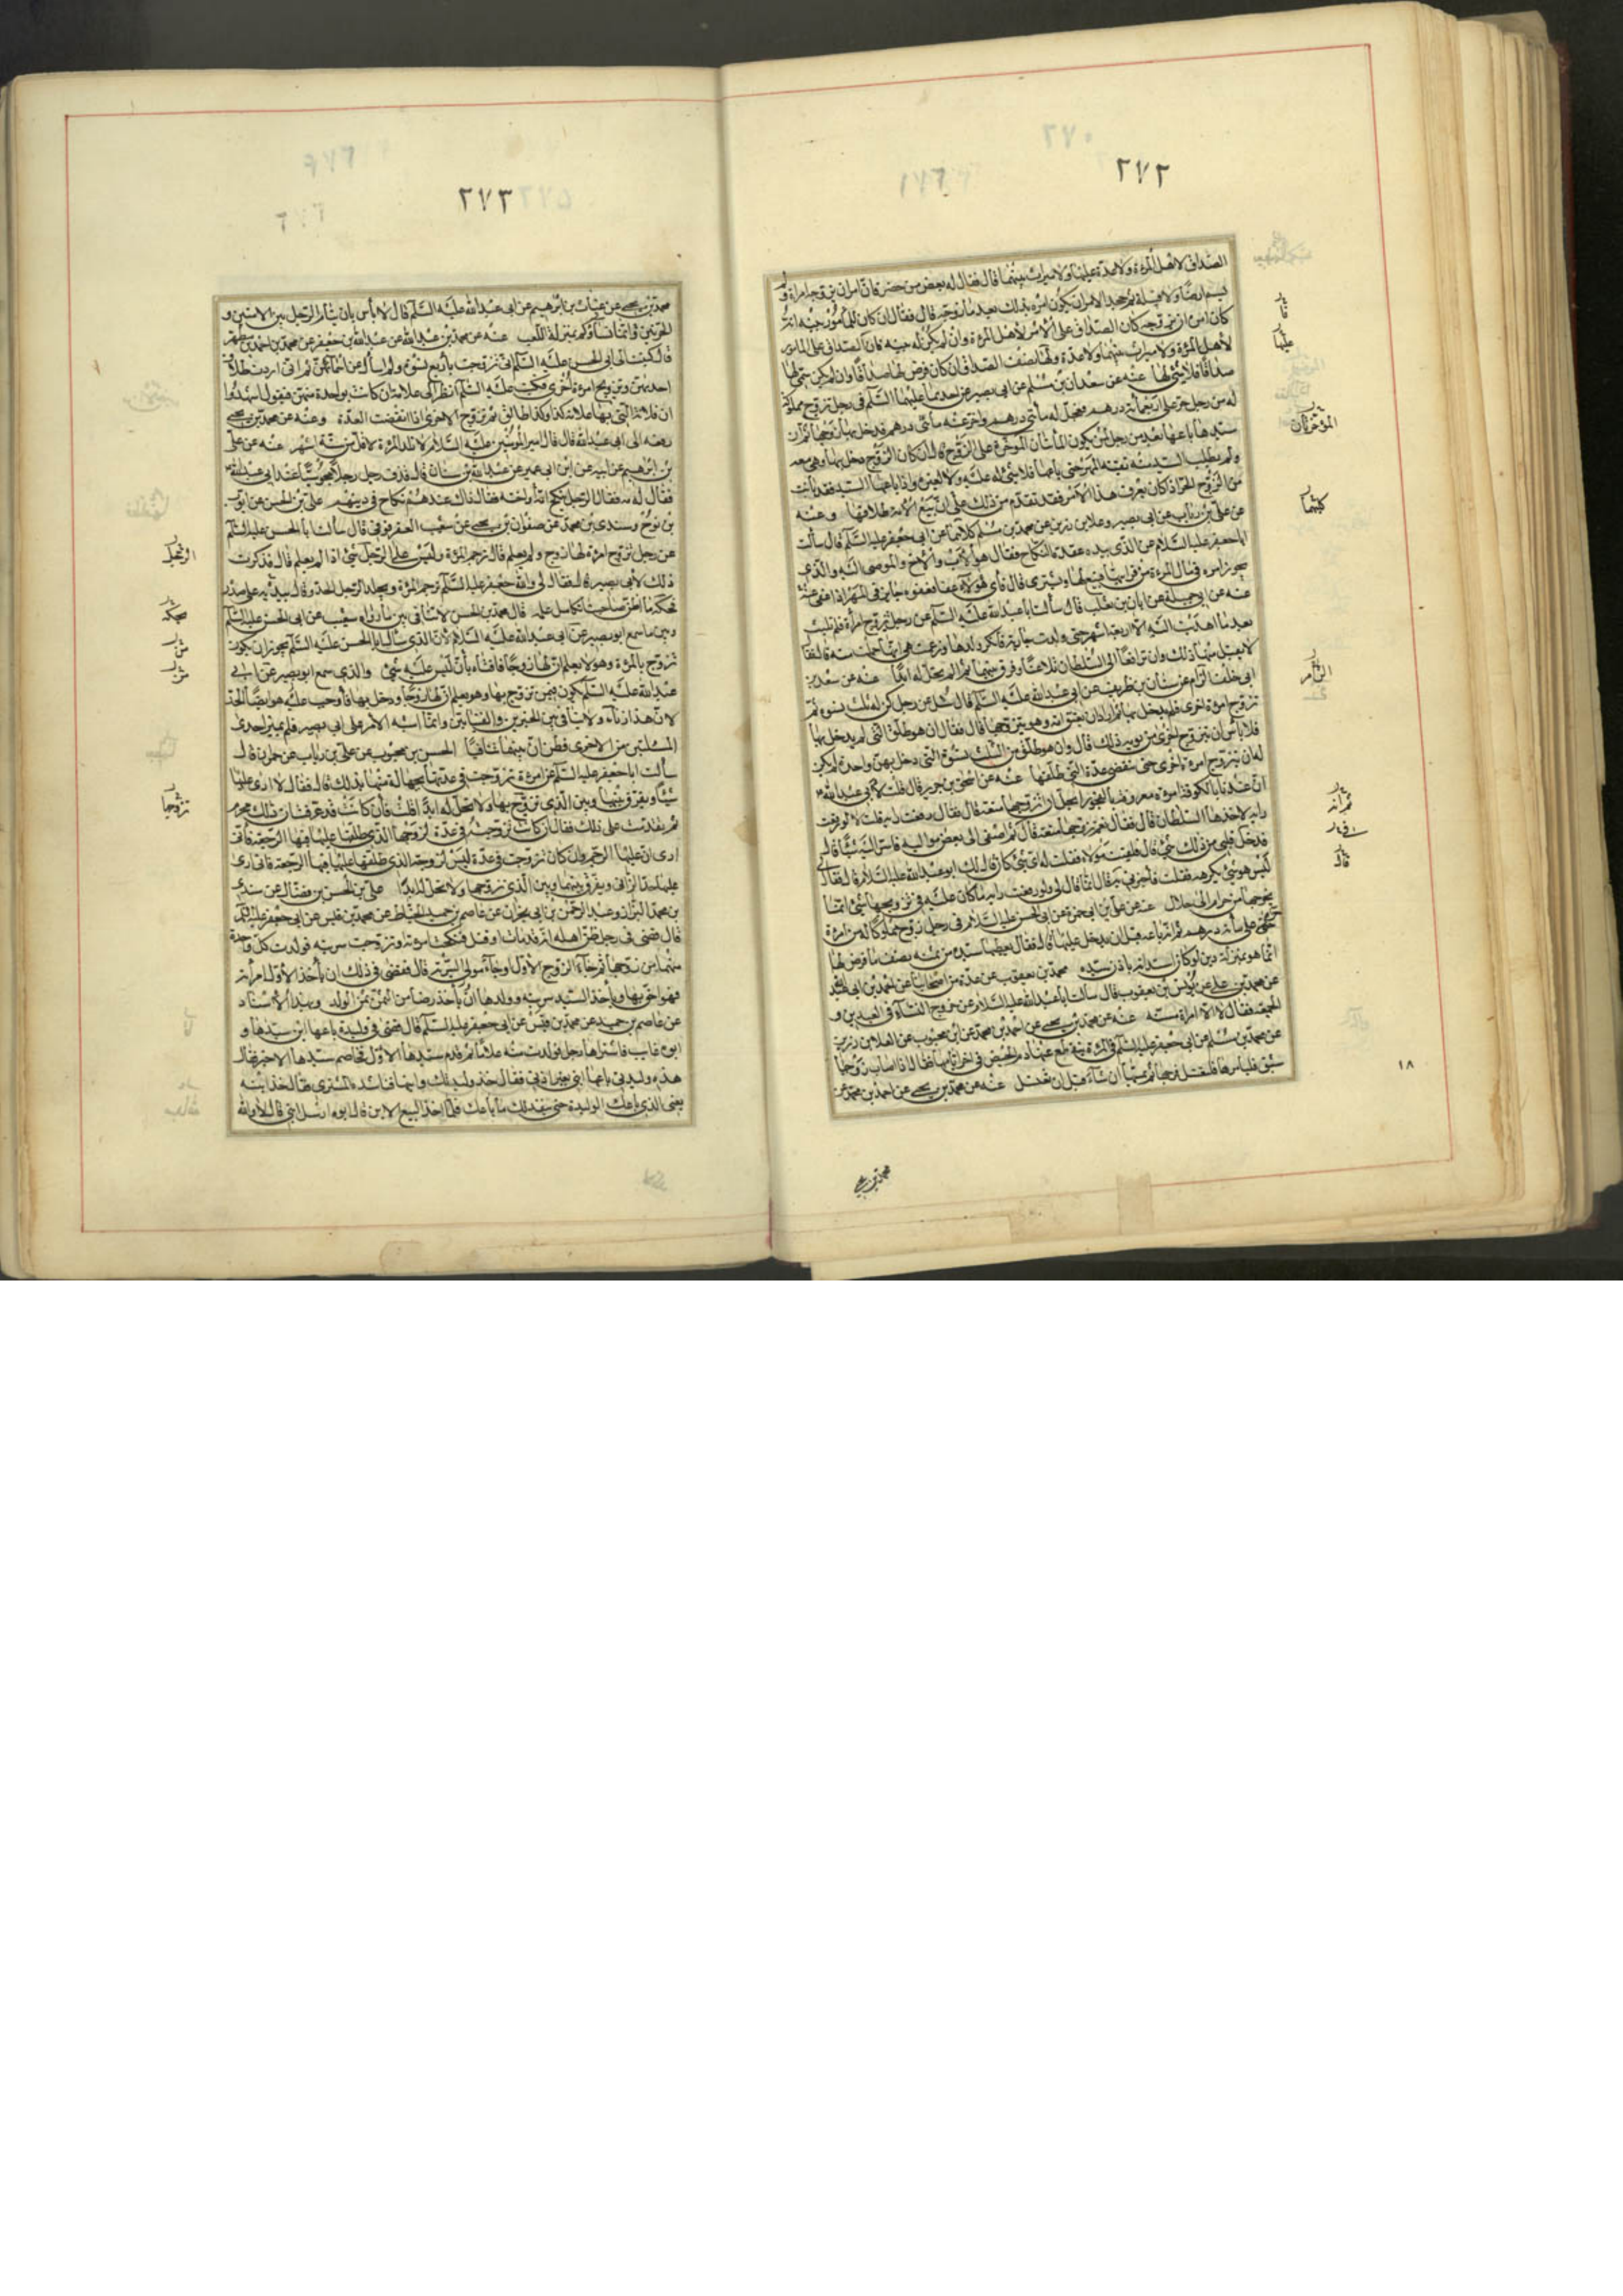 ٢٧٢
الصداق لاهل المرءة ولا عدة عليها ولا ميراث بينهما قال فقال له بعض من حضر فان امران يزوجه امراة و لم
يسم ارضا ولا قبيلة ثم جحد الامر ان يكون امره بذلك بعد ما زوجه قال فقال ان كان للمامور بينة انه
كان امره ان يزوجه كان الصداق على الآمر لاهل المرءة وان لم يكن له بينة كان الصداق على المامور
لاهل المرءة ولا ميراث بينهما ولا عدة ولها نصف الصداق ان كان فرض لها صداقا وان لم يكن سمى لها
صداقا فلا شئ لها عنه عن سعدان بن مسلم عن ابى بصير عن احدهما عليهما السلم فى رجل تزوج مملوكة
له من رجل حر على اربعمائة درهم فعجل له مأتى درهم واخر عنه مأتى درهم فدخل بها زوجها ثم ان
سيدها باعها بعد من رجل لمن يكون المأتان المؤخرة على الزوج قال ان كان الزوج دخل بها وهى معه
ولم يطلب السيد منه بقية المهر حتى باعها فلا شئ له عليه ولا لغيره واذا باعها السيد فقد بانت
من الزوج الحر اذا كان يعرف هذا الامر فقد تقدم من ذلك على ان بيع الامة طلاقها وعنه
عن على بن رياب عن ابى بصير وعلا بن رزين عن محمد بن مسلم كلاهما عن ابى جعفر عليه السلم قال سألت
ابا جعفر عليه السلام عن الذى بيده عقدة النكاح فقال هو الاب والاخ والموصى اليه والذى
يجوز امره فى مال المرءة من قرابتها فيبيع لها ويشترى قال فاى هؤلاء عفا فعفوه جايز فى المهر اذا عفى عنه
عنه عن ابى جميلة عن ابان بن تغلب قال سألت ابا عبد الله عليه السلم عن رجل تزوج امرأة فلم تلبث
بعد ما اهديت اليه الا اربعة اشهر حتى ولدت جارية فانكر ولدها وزعمت هى انها حبلت منه فقال
لا يقبل منها ذلك وان ترافعا الى السلطان تلاعنا وفرق بينهما ثم لم تحل له ابدا عنه عن سعد بن
ابى خلف الزام عن سنان بن طريف عن ابى عبد الله عليه السلم قال سئل عن رجل كن له ثلث نسوه ثم
تزوج امرءة اخرى فلم يدخل بها ثم اراد ان يعتق امة وهو يتزوجها قال فقال ان هو طلق التى لم يدخل بها
فلا باس ان يتزوج اخرى من يومه ذلك قال وان هو طلق من الثلث النسوة التى دخل بهن واحدة لم يكن
له ان يتزوج امرءة اخرى حتى تنقضى عدة التى طلقها عنه عن اسحق بن جرير قال قلت لابى عبد الله ع
ان عندنا بالكوفة امرءة معروفة بالفجور ايحل ان اتزوجها متعة قال فقال رفعت راية قلت لا لو رفعت
راية لاخذها السلطان قال فقال نعم تزوجها متعة قال ثم اصغى الى بعض مواليه فاسر اليه شيئا قال
فدخل قلبى من ذلك شئ قال فلقيت مولاه فقلت له اى شئ كان قال لك ابو عبد الله عليه السلام قال فقال لى
ليس هو شئ تكرهه فقلت فاخبرنى به قال انما قال لى ولو رفعت راية ما كان عليه فى تزويجها شئ انما
يخرجها من حرام الى حلال عنه عن على بن ابى حمزة عن ابى الحسن عليه السلام فى رجل زوج مملوكا له من امرءة
حرة على مأة درهم ثم انه باعه قبل ان يدخل عليها قال فقال يعطيها سيده من ثمنه نصف ما فرض لها
انما هو بمنزلة دين لو كان استدانه باذن سيده محمد بن يعقوب عن عدة من اصحابنا عن احمد بن ابى عبد الله
عن محمد بن على عن يونس بن يعقوب قال سألت ابا عبد الله عليه السلام عن خروج النساء فى العيدين و
الجمعة فقال لا الا امراة مسنة عنه عن محمد بن يحيى عن احمد بن محمد عن ابن محبوب عن العلا بن رزين
عن محمد بن مسلم عن ابى جعفر عليه السلم فى المرءة ينقطع عنها دم الحيض فى اخر ايامها فقال اذا اصاب زوجها
شبق فليأمرها فلتغسل فرجها ثم يمسها ان شاء قبل ان تغتسل عنه عن محمد بن يحيى عن احمد بن محمد عن
محمد بن يحيى
عليها
المؤخرتان
كليهما
الزام
ثم انه
قال
١٨
٢٧٣
محمد بن يحيى عن غياث بن ابرهيم عن ابى عبد الله عليه السلم قال لا بأس بان ينام الرجل بين الامتين و
الحرتين وانما نساؤكم بمنزلة اللعب عنه عن محمد بن عبد الله عن عبد الله بن جعفر عن محمد بن احمد بن مطهر
قال كتبت الى ابى الحسن عليه السلم انى تزوجت باربع نسوة ولم اسأل عن اسمائهن ثم انى اردت طلاق
احديهن وتزويج امرءة اخرى فكتب عليه السلم انظر الى علامة ان كانت بواحدة منهن فتقول اشهدوا
ان فلانة التى بها علامة كذا وكذا طالق ثم تزوج الاخرى اذا انقضت العدة وعنه عن محمد بن يحيى
رفعه الى ابى عبد الله قال قال امير المؤمنين عليه السلام لا تلد المرءة لاقل من ستة اشهر عنه عن على
بن ابرهيم عن ابيه عن ابن ابى عمير عن عبد الله بن سنان قال قذف رجل رجلا مجوسيا عند ابى عبد الله ع
فقال له مه فقال الرجل نكح امه او اخته فقال ذاك عندهم نكاح فى دينهم على بن الحسن عن ايوب
بن نوح وسندى بن محمد عن صفوان بن يحيى عن شعيب العقرقوفى قال سألت ابا الحسن عليه السلم
عن رجل تزوج امرءة لها زوج ولم يعلم قال ترجم المرءة وليس على الرجل شئ اذا لم يعلم قال فذكرت
ذلك لابى بصير قال فقال لى والله جعفر عليه السلم ترجم المرءة ويجلد الرجل الحد وقال بيده على صدره
يحكه ما اظن صاحبنا تكامل علمه قال محمد بن الحسن لا تنافى بين ما رواه شعيب عن ابى الحسن عليه السلم
وبين ما سمع ابو بصير عن ابى عبد الله عليه السلام لان الذى سأل ابا الحسن عليه السلم يجوز ان يكون
تزوج بالمرءة وهو لا يعلم ان لها زوجا فافتاه بان ليس عليه شئ والذى سمع ابو بصير عن ابى
عبد الله عليه السلم يكون فيمن تزوج بها وهو يعلم ان لها زوجا ودخل بها فاوجب عليه هو ايضا الحد
لان هذا زناء ولا ينافى بين الخبرين والفتيايين وانما اشبه الامر على ابى بصير فلم يميز احدى
المسئلتين من الاخرى فظن ان بينهما تنافيا الحسن بن محبوب عن على بن رياب عن حمران قال
سألت ابا جعفر عليه السلم عن امرءة تزوجت فى عدتها بجهالة منها بذلك قال فقال لا ارى عليها
شيئا ويفرق بينها وبين الذى تزوج بها ولا تحل له ابدا قلت فان كانت قد عرفت ان ذلك محرم
ثم تقدمت على ذلك فقال ان كانت تزوجت فى عدة لزوجها الذى طلقها عليها فيها الرجعة فانى
ارى ان عليها الرجم وان كان تزوجت فى عدة ليس لزوجها الذى طلقها عليها فيها الرجعة فانى ارى
عليها حد الزانى ويفرق بينهما وبين الذى تزوجها ولا تحل له ابدا على بن الحسن بن فضال عن سندى
بن محمد البزاز وعبد الرحمن بن ابى نجران عن عاصم بن حميد الحناط عن محمد بن قيس عن ابى جعفر عليه السلم
قال قضى فى رجل ظن اهله انه قد مات او قتل فنكحت امرءته او تزوجت سريته فولدت كل واحدة
منهما من زوجها ثم جاء الزوج الاول او جاء مولى السرية قال فقضى فى ذلك ان يأخذ الاول امرأته
فهو احق بها ويأخذ السيد سريته وولدها او يأخذ رضا من الثمن ثمن الولد وبهذا الاسناد
عن عاصم بن حميد عن محمد بن قيس عن ابى جعفر عليه السلم قال قضى فى وليدة باعها ابن سيدها و
ابوه غايب فاشتراها رجل فولدت منه غلاما ثم قدم سيدها الاول فخاصم سيدها الاخير فقال
هذه وليدتى باعها ابنى بغير اذنى فقال خذ وليدتك وابنها فناشده المشترى فقال خذ ابنه
يعنى الذى باعك الوليدة حتى ينفذ لك ما باعك فلما اخذ البيع الابن قال ابوه ارسل ابنى قال لا والله
الرجل
يحكه
تزوجها